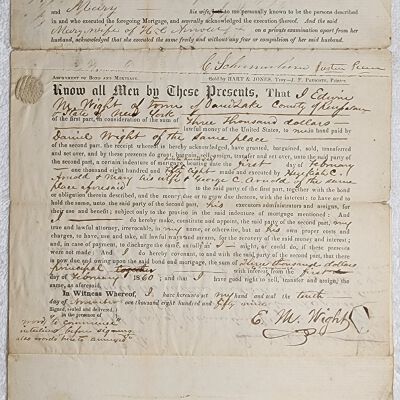 and Mary his wife, to me personally known to be the persons described
in and who executed the foregoing Mortgage, and severally acknowledged the execution thereof. And the said
Mary, wife of on a private examination apart from her
husband, acknowledged that she executed the same freely and without any fear or compulsion of her said husband.
C. Schermerhorn Justice Peace
Assignment of Bond and Mortgage. Sold by HART & JONES, Troy—J. F. PARSONS, Printer.
Know all Men by These Presents, That I Edwin
M. Wight of town of Sandlake County of Rensselaer
State of New York
of the first part, in consideration of the sum of Three Thousand dollars
lawful money of the United States, to me in hand paid by
Daniel Wight of the same place
of the second part, the receipt whereof is hereby acknowledged, have granted, bargained, sold, transferred
and set over, and by these presents do grant, bargain, sell, assign, transfer and set over, unto the said party of
the second part, a certain indenture of mortgage, bearing date the first day of February
one thousand eight hundred and fifty eight made and executed by C.
Arnold & Mary his wife & George C. Arnold of the same
place aforesaid to the said party of the first part, together with the bond
or obligation therein described, and the money due or to grow due thereon, with the interest: to have and to
hold the same unto the said party of the second part, his executors administrators and assigns, for
use and benefit; subject only to the proviso in the said indenture of mortgage mentioned: And
I do hereby make, constitute and appoint, the said party of the second part, my
true and lawful attorney, irrevocable, in my name, or otherwise, but at his own proper costs and
charges, to have, use and take, all lawful ways and means, for the recovery of the said money and interest;
and, in case of payment, to discharge the same, as fully as I might, or could do, if these presents
were not made: And I do hereby covenant, to and with the said party of the second part, that there
is now due and owing upon the said bond and mortgage, the sum of three thousand dollars
principal together with interest from the first
day of February 1860; and that I have
good right to sell, transfer, and assign, the
same, as aforesaid.
In Witness Whereof, I have hereunto set my hand and seal the tenth
day of November one thousand eight hundred and fifty nine
Signed, sealed and delivered,
in the presence of
E. M. Wight
word "to commence"
interlined before signing
also words